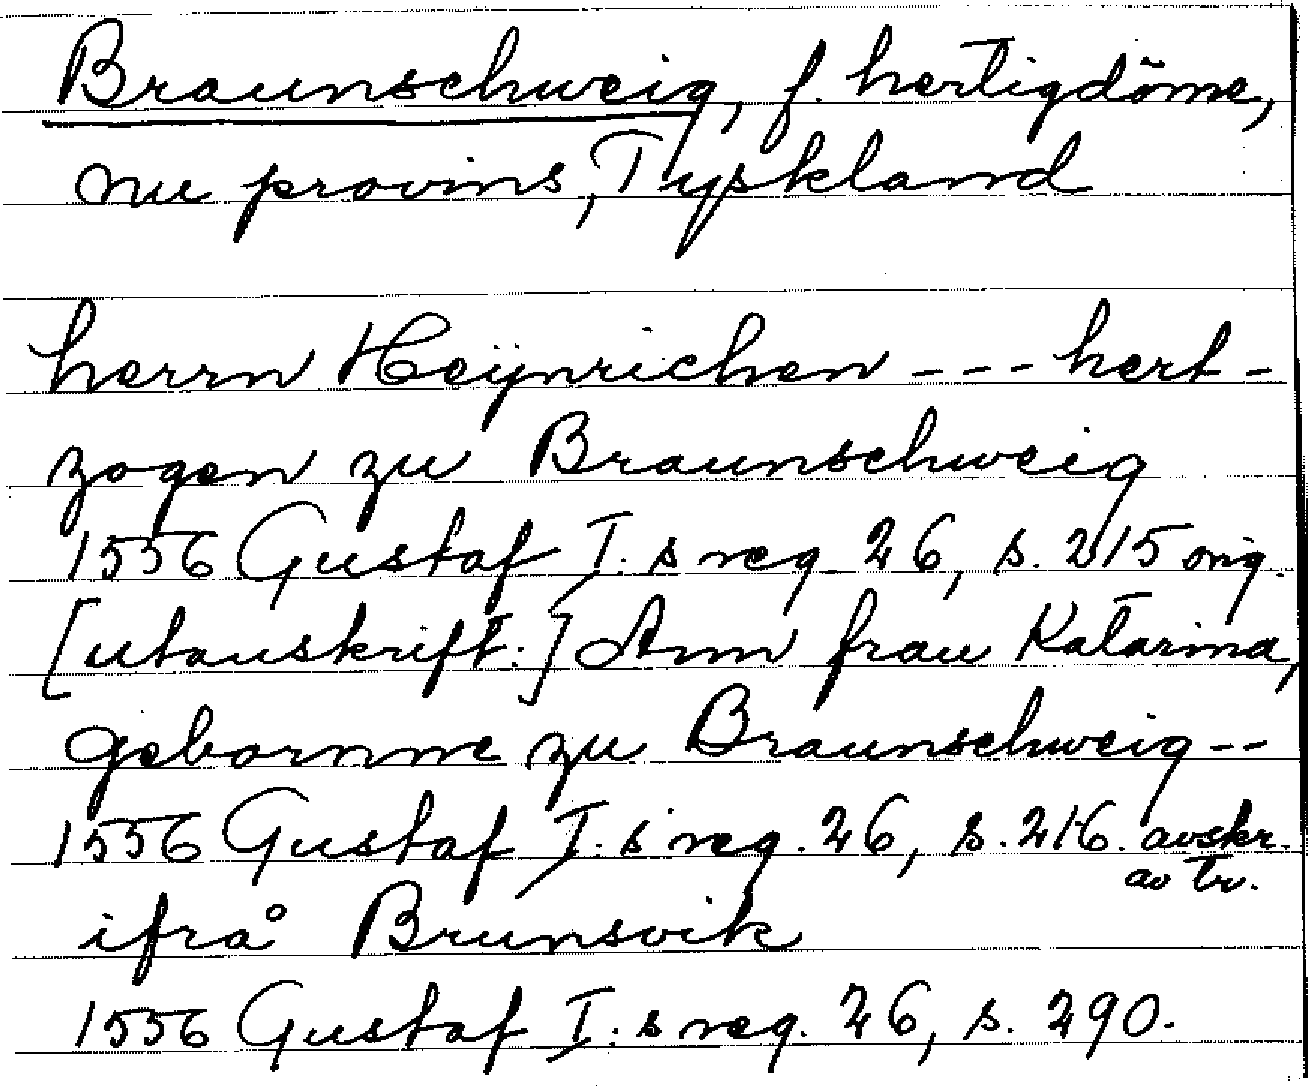 Braunschweig, f. hertigdöme,
nu provins, Tyskland
herrn Heÿnrichen --- hert-
zogen zu Braunschweig
1556 Gustaf I:s reg. 26, s. 215 orig.
[utanskrift:] Ann frau Katarina,
gebornne zu Braunschweig--
1556 Gustaf I:s reg. 26, s. 216. avskr.
av tr.
ifrå Brunsvik
1556 Gustaf I:s reg. 26, s. 290.